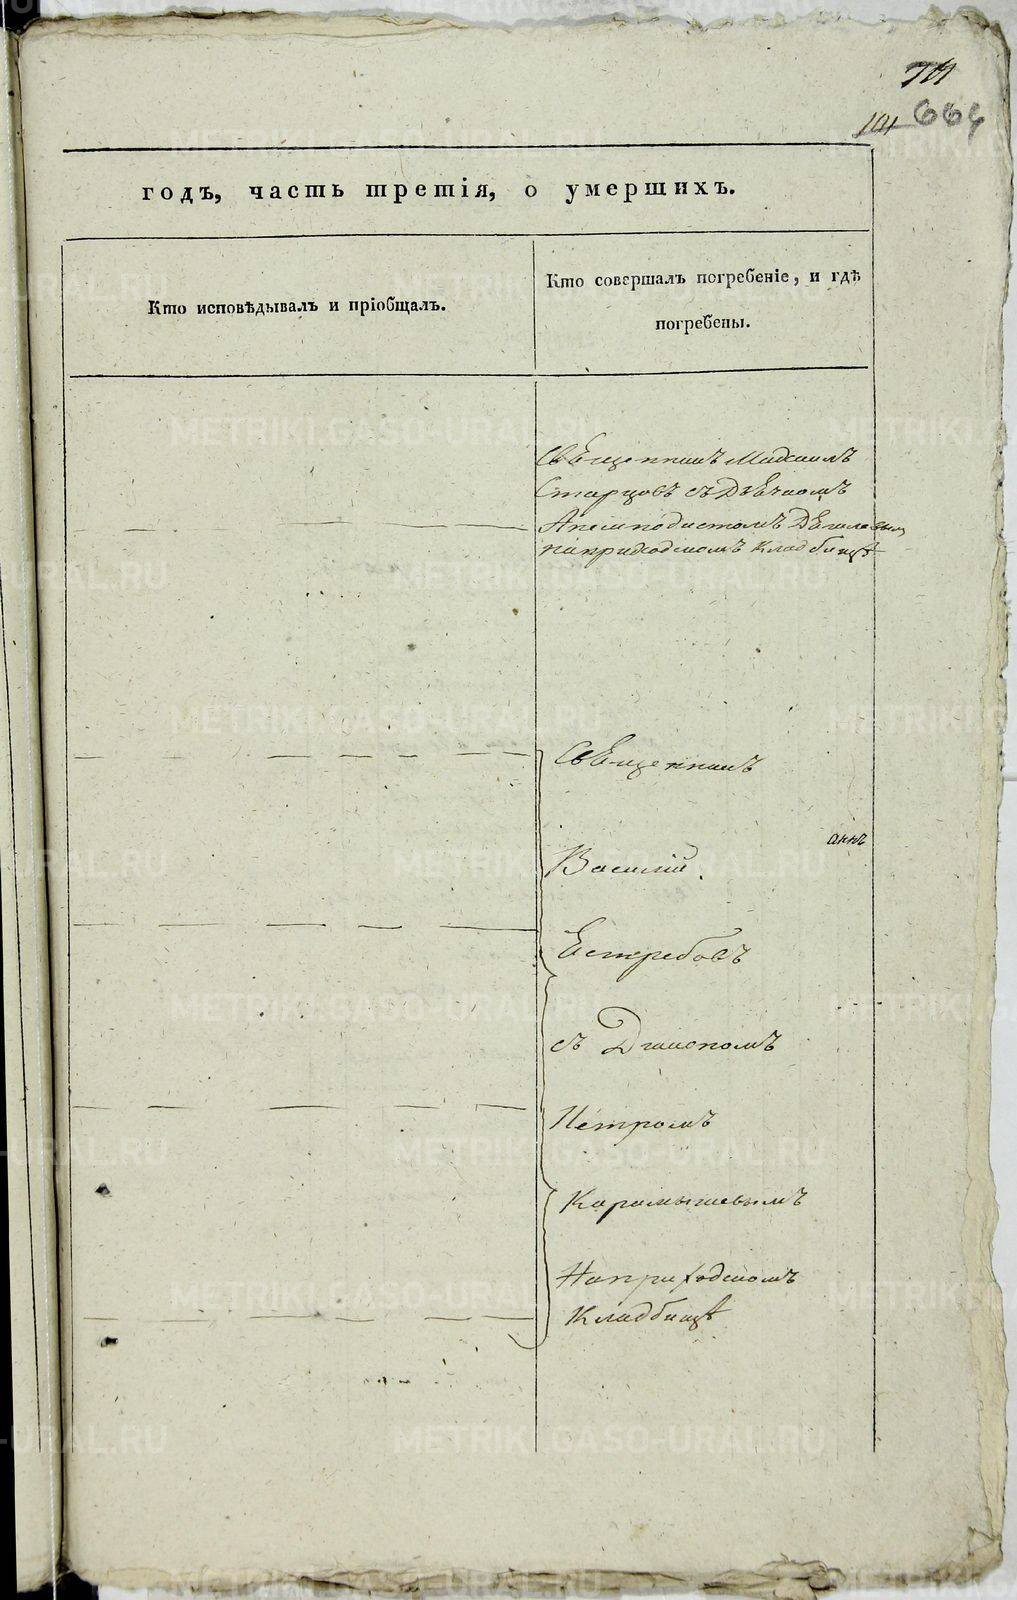 664
годъ, часть третія, о умершихъ.
Кто исповѣдывалъ и пріобщалъ.
Кто совершалъ погребеніе, и гдѣ
погребены.
Священникъ Михаилъ
Старцовъ съ Дьячкомъ
на приходскомъ кладбищѣ
Священникъ
Василій
Естребовъ
съ Діакономъ
Петромъ
Карамышевымъ
На приходскомъ
кладбищѣ
METRIKI.GASO-URAL.RU